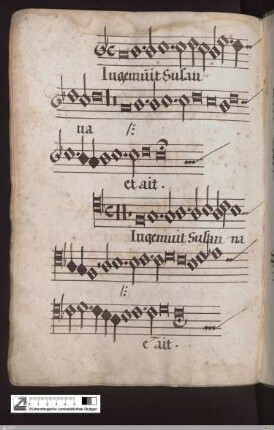 Ingemuit Susan
na /:
et ait.
Ingemuit Susan na
/:
et ait.
Württembergische Landesbibliothek Stuttgart